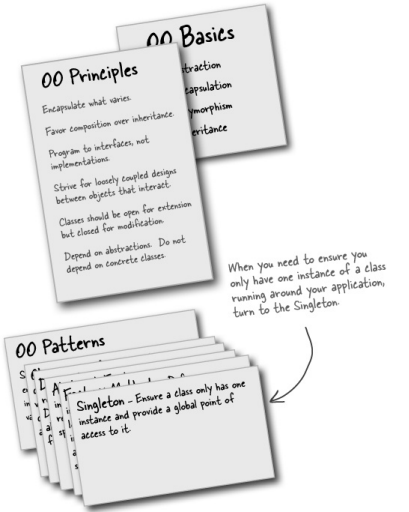 OO Basics
OO Principles
Encapsulate what varies.
Favor composition over inheritance.
Program to interfaces, not
implementations.
Strive for loosely coupled designs
between objects that interact.
Classes should be open for extension
but closed for modification.
Depend on abstractions. Do not
depend on concrete classes.
When you need to ensure you
only have one instance of a class
running around your application,
turn to the Singleton.
OO Patterns
Singleton - Ensure a class only has one
instance and provide a global point of
access to it.